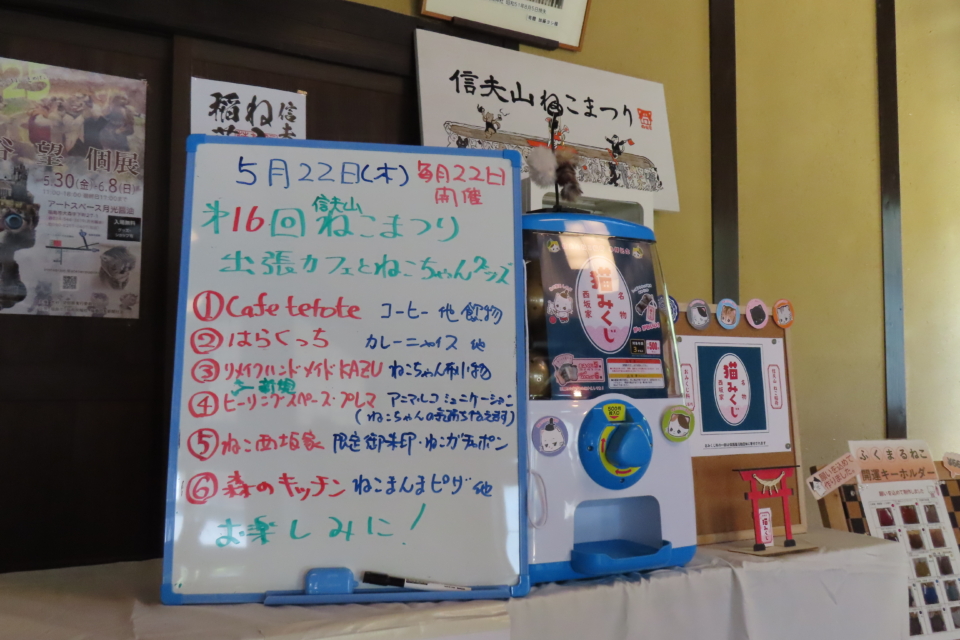 信夫山ねこまつり
信夫
5月22日(木) 毎月22日
開催
第16回 信夫山 ねこまつり
出張カフェとねこちゃんグッズ
① Cafe tetote コーヒー他飲物
② はらくっち カレーライス他
③ リメイクハンドメイドKAZU ねこちゃん布小物
④ ヒーリングスペース・プレマ アニマルコミュニケーション
(ねこちゃんの気持ち伝えます)
⑤ ねこ西坂家 限定御朱印・ねこガチャポン
⑥ 森のキッチン ねこまんまピザ他
お楽しみに!
望 個展
5.30(金) 6.8(日)
アートスペース月光荘
入場無料
名物
猫みくじ
西坂家
名物
猫みくじ
西坂家
猫みくじ
ふくまるねこ
開運キーホルダー